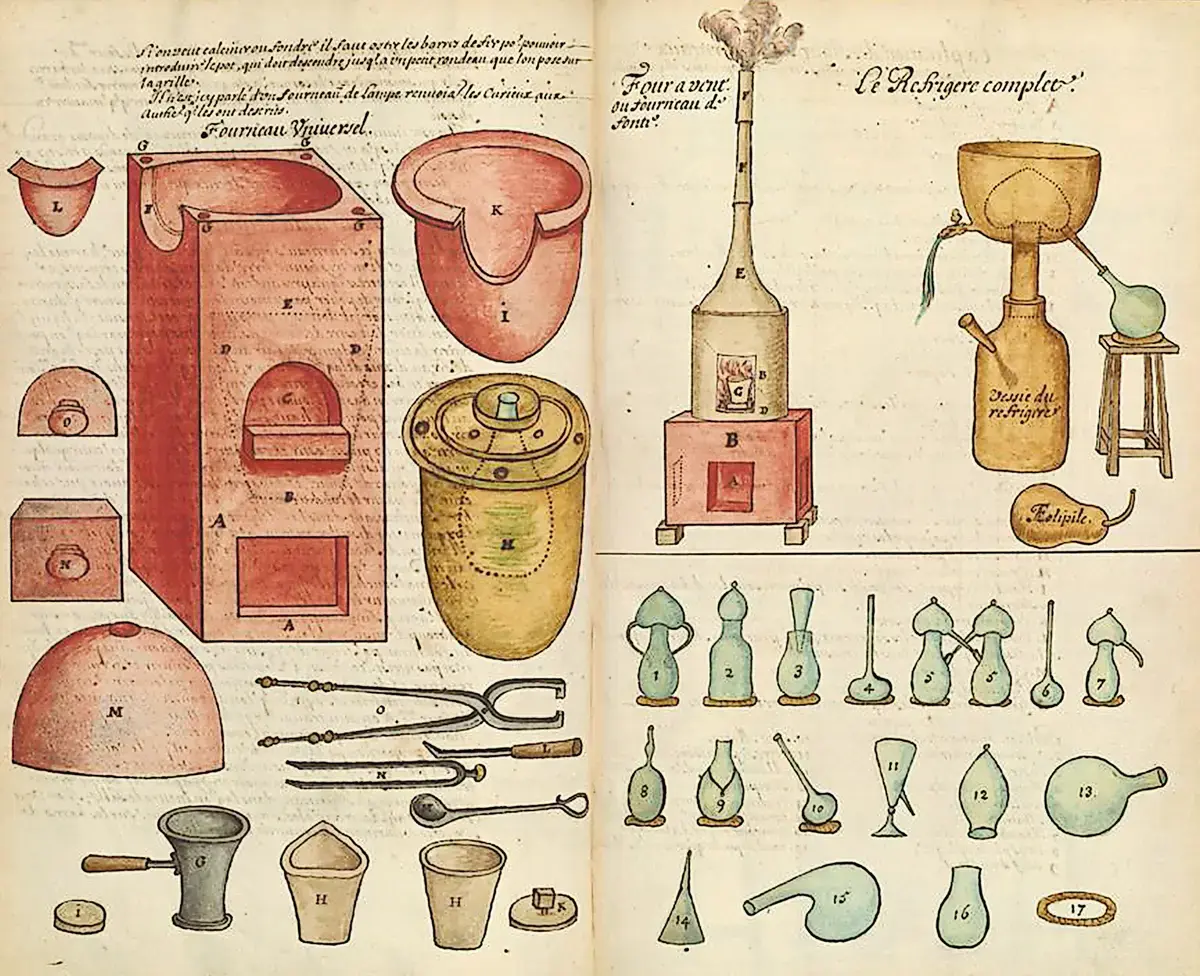 Si on veut calciner ou fondre il faut oster les barres de fer po.r pouvoir
introduire le pot, qui doit descendre jusq'a un petit rondeau, que l'on pose sur
la grille.
Il n'est icy parlé d'un fourneau de lampe renvoia les Curieux aux
Auth.s q.i les ont descris.
Fourneau Vniversel.
G G
F
G G
E
D D
C
B
A
A
L
O
N
M
K
I
H
O
L
N
M
G
H
H
I
K
Four a vent.
ou fourneau de
fonte.
F
F
E
B
C
D
B
A
Le Refrigere complet.
Vessie du
refrigere
Æolipile.
1 2 3 4 5 5 6 7
8 9 10 11 12 13.
14 15 16 17